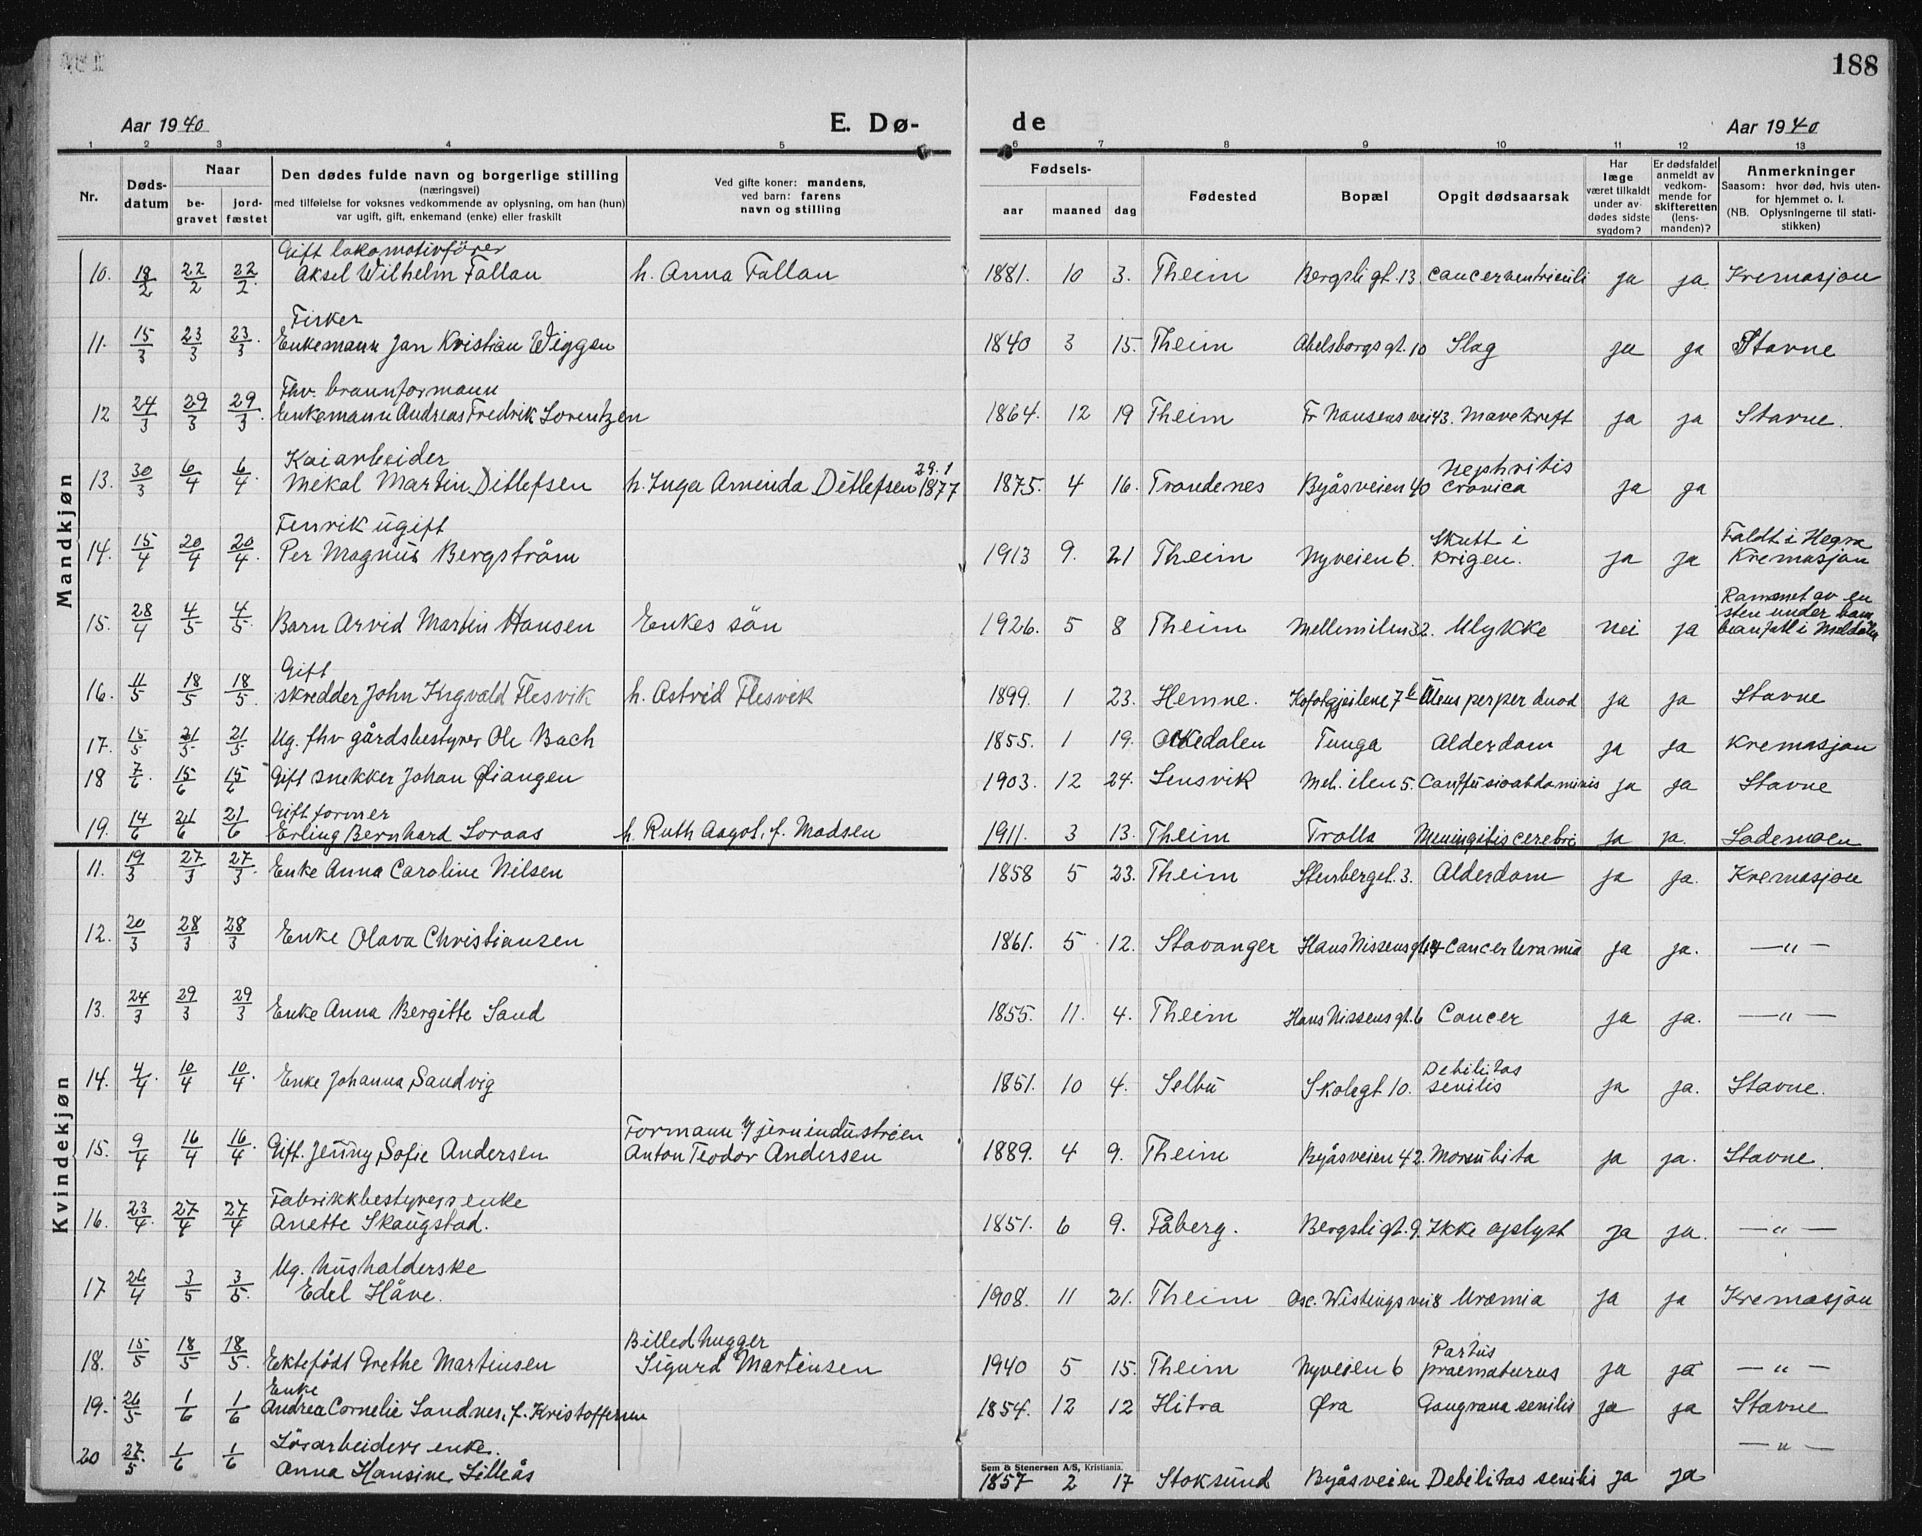 188
Aar 1940 E. Dø- de Aar 1940
1 2 3 4 5 6 7 8 9 10 11 12 13
Nr. Døds-datum Naar be-gravet jord-fæstet Den dødes fulde navn og borgerlige stilling (næringsvei) med tilføielse for voksnes vedkommende av oplysning, om han (hun) var ugift, gift, enkemand (enke) eller fraskilt Ved gifte koner: mandens, ved barn: farens navn og stilling Fødsels- aar maaned dag Fødested Bopæl Opgit dødsaarsak Har læge været tilkaldt under av-dødes sidste sygdom? Er dødsfaldet anmeldt av vedkom-mende for skifteretten (lens-manden)? Anmerkninger Saasom: hvor død, hvis uten-for hjemmet o. l. (NB. Oplysningerne til stati-stikken)
Mandkjøn
Gift lokomotivfører
10. 18/2 22/2 22/2. Aksel Wilhelm Fallan h. Anna Fallan 1881. 10 3. Theim Bergsli gt. 13. Cancer ventriculi ja ja Kremasjon
Fisker
11. 15/3 23/3 23/3. Enkemann Jan Kristian Wiggen 1840 3 15. Theim Abelsborgs gt. 10 Slag ja ja Stavne
Fhv. brannformann
12 24/3 29/3 29/3. Enkemann Andreas Fredrik Lorentzen 1864. 12 19 Theim Fr Nansens vei 43. Mavekreft ja ja Stavne.
Kaiarbeider 29.1 Nephritis
13. 30/3 6/4 6/4. Mekal Martin Ditlefsen h. Inga Arninda Ditlefsen 1877 1875. 4 16. Trondenes Byåsveien 40 cronica ja ja
Fenrik ugift Skutt i Faldt i Hegra
14. 15/4 20/4 20/4. Per Magnus Bergstrøm 1913 9. 21 Theim Nyveien 6. krigen. ja ja Kremasjon
Rammet av en
sten under
15. 28/4 4/5 4/5. Barn Arvid Martin Hansen Enkes søn 1926. 5 8 Theim Mellemilen 32. Ulykke nei ja i Meldalen
Gift
16. 11/5 18/5 18/5. skredder John Ingvald Flesvik h. Astrid Flesvik 1899. 1 23. Hemne. 7b Ulcus perper duod ja ja Stavne
17. 15/5 21/5 21/5 Ug. fhv gårdsbestyrer Ole Bach 1855. 1 19. Orkedalen Tunga Alderdom ja ja Kremasjon
18 7/6. 15/6 15/6 Gift snekker Johan Øiangen 1903. 12 24. Lensvik Mel. ilen 5. Contusio abdominis ja ja Stavne
Gift former
19. 14/6 21/6 21/6 Erling Bernhard Loraas h. Ruth Aagot, f. Madsen 1911. 3 13. Theim Trolla Meningitis cerebri ja ja. Lademoen
Kvindekjøn
11. 19/3 27/3 27/3. Enke Anna Caroline Nilsen 1858 5 23. Theim Stensberget. 3. Alderdom ja ja. Kremasjon
12. 20/3 28/3 28/3 Enke Olava Christiansen 1861. 5 12. Stavanger Hans Nissens gt Cancer Uramia ja ja. —"—
13. 24/3 29/3 29/3 Enke Anna Bergitte Sand 1855. 11. 4. Theim Hans Nissens gt. 6 Cancer ja ja. —"—
Debilitas
14. 4/4. 10/4 10/4. Enke Johanna Sandvig 1851. 10 4. Selbu Skolegt 10. senilis ja ja. Stavne.
Formann v/ jernindustrien
15. 9/4 16/4 16/4. Gift. Jenny Sofie Andersen Anton Teodor Andersen 1889. 4 9. Theim Byåsveien 42. Morsubita ja ja. Stavne.
Fabrikkbestyrers enke
16. 23/4. 27/4 27/4 Anette Skaugstad. 1851. 6 9. Fåberg. Bergsli gt. 9. Ikke oplyst ja ja. —"—
Ug. husholderske
17 26/4 3/5 3/5. Edel Håve. 1908. 11 21. Theim Osc. Wistings vei 8 Uræmia ja ja Kremasjon
Billedhugger Partus
18. 15/5 18/5 18/5. Ektefødt Grethe Martinsen Sigurd Martinsen 1940 5 15. Theim Nyveien 6 praematurus ja ja —"—
Enke
19. 26/5 1/6 1/6 Andrea Cornelie Sandnes, f. Kristoffersen 1854. 12 12 Hitra Øra Gangrana senilis ja ja Stavne
Løsarbeiders enke. —"—
20 27/5. 1/6 1/6 Anna Hansine Lilleås 1857 2 17 Stoksund Byåsveien Debilitas senilis ja ja
Sem & Stenersen A/S, Kristiania.